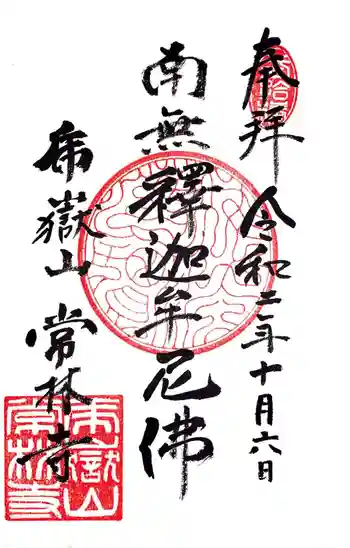 奉拝 令和二年十月六日
南無釋迦牟尼佛
帝嶽山 常林寺